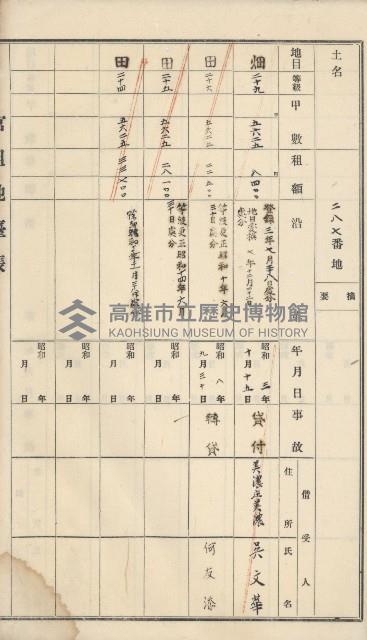 土名
二八七番地
摘要
地目
等級
甲數
租額
沿
年月日
事故
住所
借受人
氏名
畑
二十九
五六二五
八四〇〇
登錄 三年七月二十八日處分
地目變換 七年十二月二十二日
處分
昭和 三年
十月十九日
貸付
美濃庄美濃
吳文華
田
二十六
五六二五
二二五〇〇
等級更正昭和十年六月
三十日處分
昭和 八年
九月三十日
轉貸
何友添
田
二十五
五六二五
二八一〇〇
等級更正昭和十四年六月
三十日處分
昭和 年
月 日
田
二十四
五六二五
三三七〇〇
昭和 年
月 日
昭和 年
月 日
官租地臺帳
高雄市立歷史博物館
KAOHSIUNG MUSEUM OF HISTORY